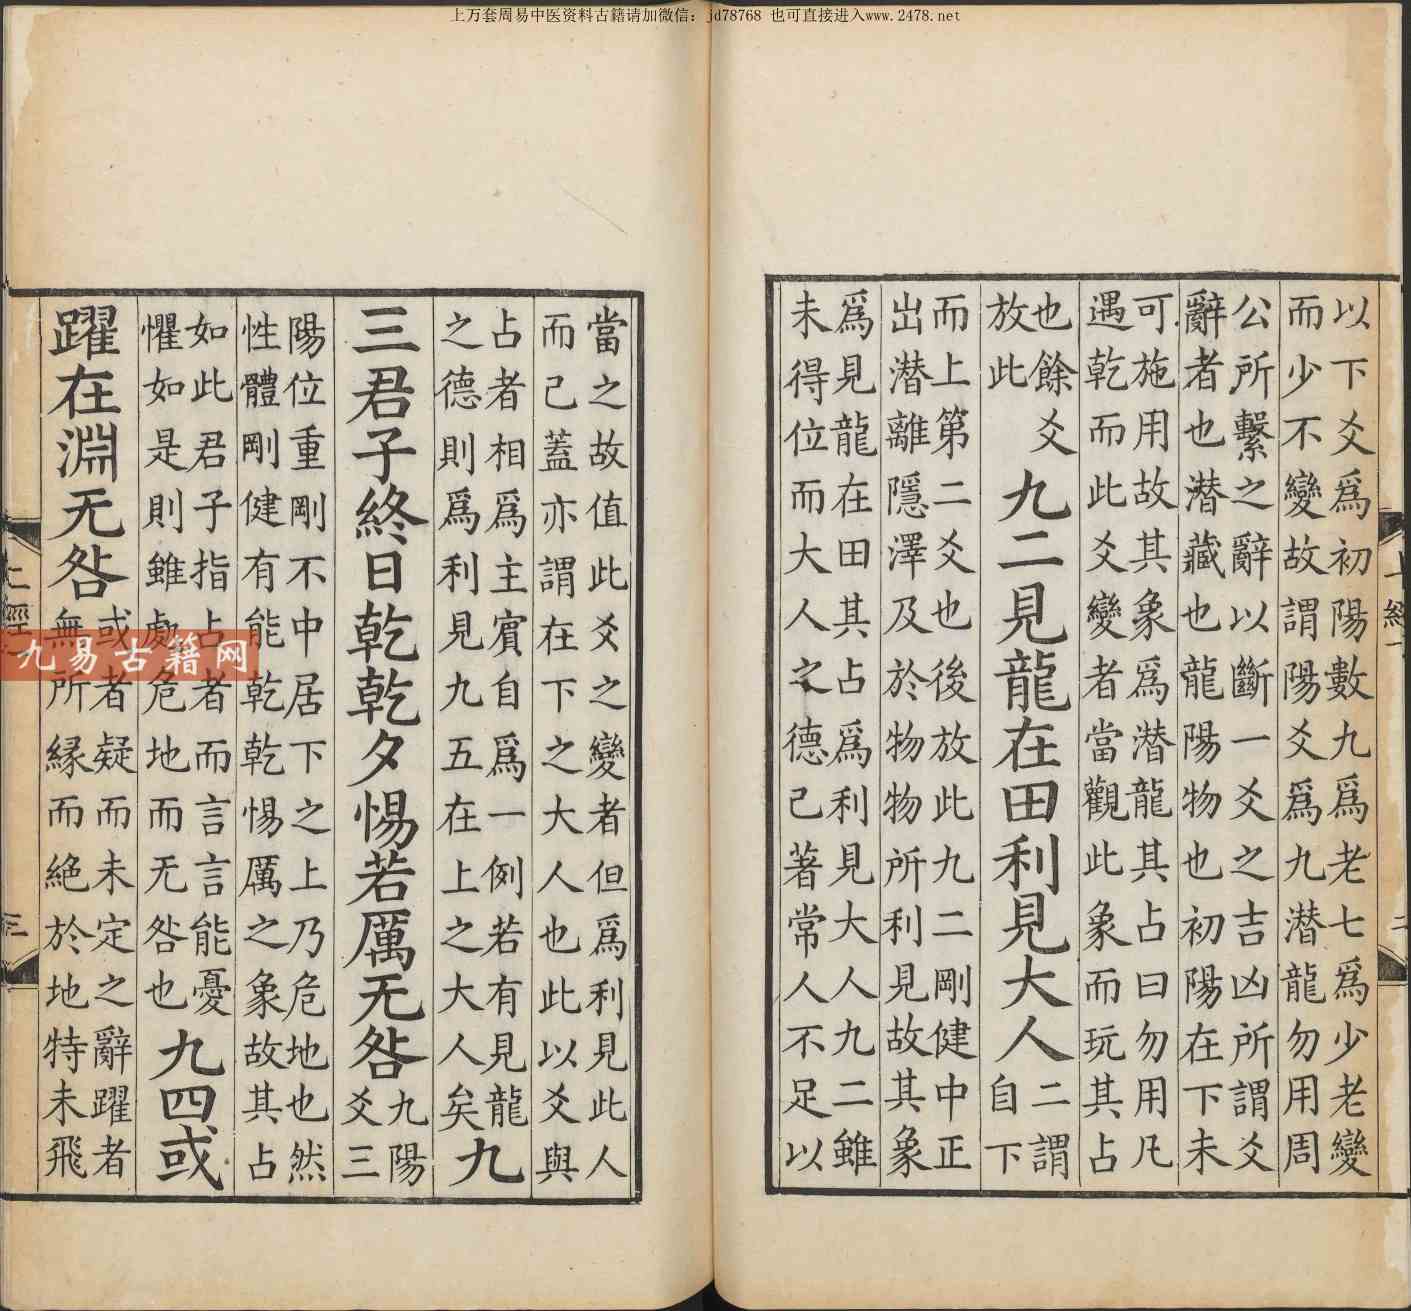 上万套周易中医资料古籍请加微信：jd78768 也可直接进入www.2478.net
以下爻爲初陽數九爲老七爲少老變
而少不變故謂陽爻爲九潜龍勿用周
公所繫之辭以斷一爻之吉凶所謂爻
辭者也潜藏也龍陽物也初陽在下未
可施用故其象爲潜龍其占曰勿用凡
遇乾而此爻變者當觀此象而玩其占
也餘爻
放此
九二見龍在田利見大人
二謂
自下
而上第二爻也後放此九二剛健中正
出潜離隱澤及於物物所利見故其象
爲見龍在田其占爲利見大人九二雖
未得位而大人之德已著常人不足以
二
當之故值此爻之變者但爲利見此人
而已蓋亦謂在下之大人也此以爻與
占者相爲主賓自爲一例若有見龍
之德則爲利見九五在上之大人矣
九
三君子終日乾乾夕惕若厲无咎
九陽
爻三
陽位重剛不中居下之上乃危地也然
性體剛健有能乾乾惕厲之象故其占
如此君子指占者而言言能憂
懼如是則雖處危地而无咎也
九四或
躍在淵无咎
或者疑而未定之辭躍者
無所緣而絶於地特未飛
上經
三
九易古籍网